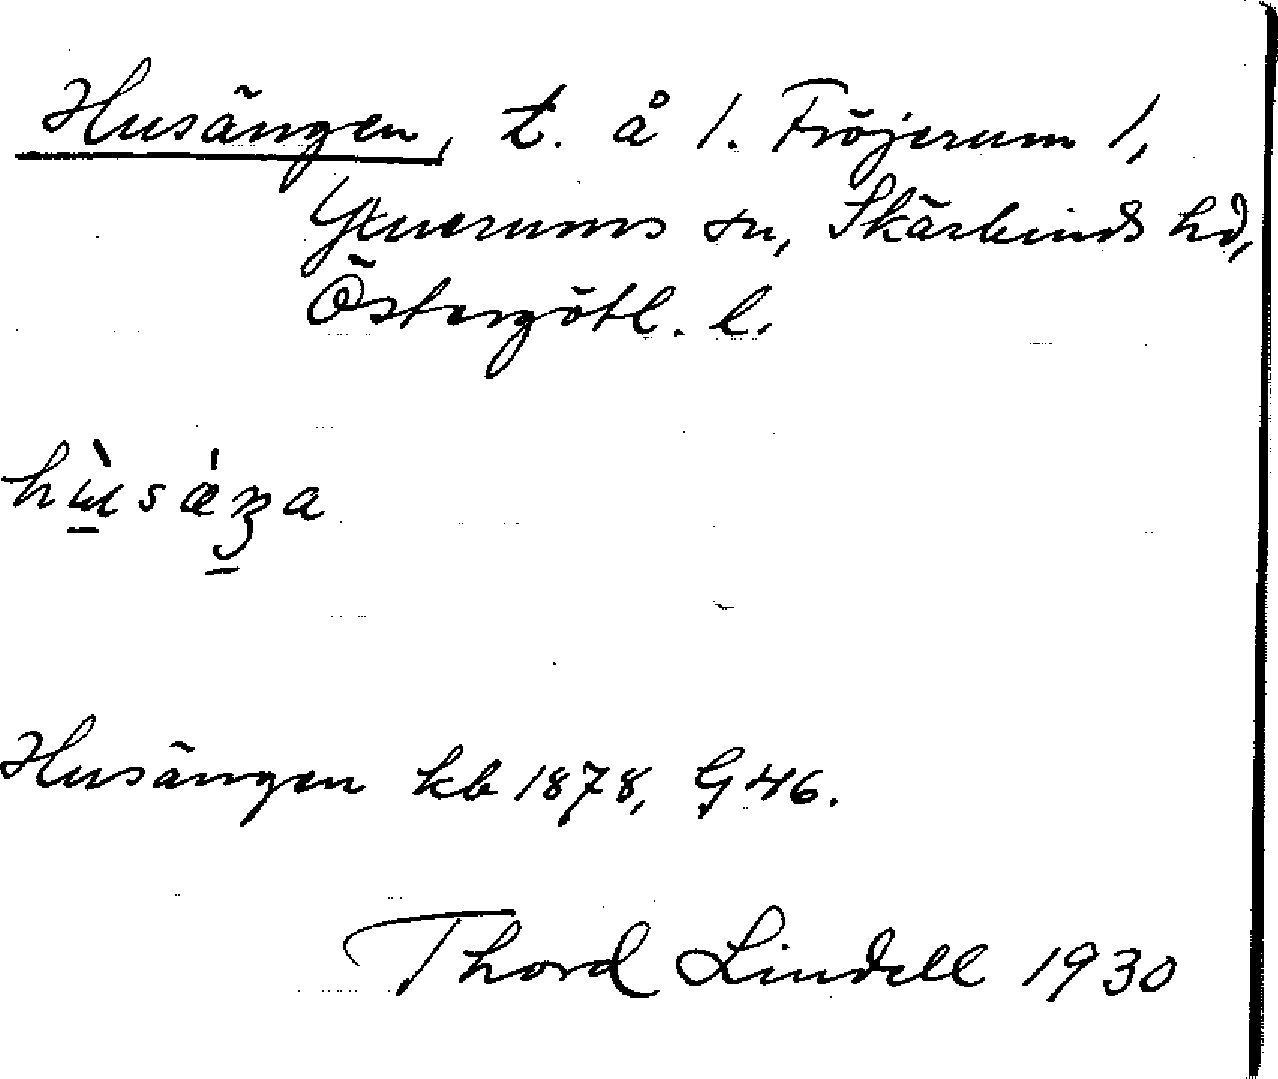 Husängen, t. å 1. Fröjerum 1,
Gryts sn, Skärkinds hd,
Östergötl. l.
hùsǽŋa
Husängen kb 1878, G 46.
Thord Lindell 1930